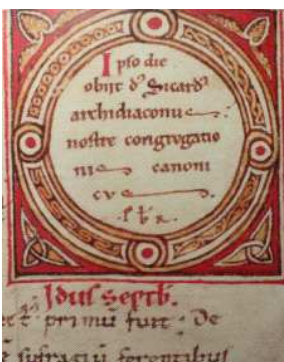 Ipso die
obijt dˢ Sicardˢ
archidiaconus
nostre congregatio
nis canoni
cus
Idus septb.
primū fuit : De
sufragiū ferentibus